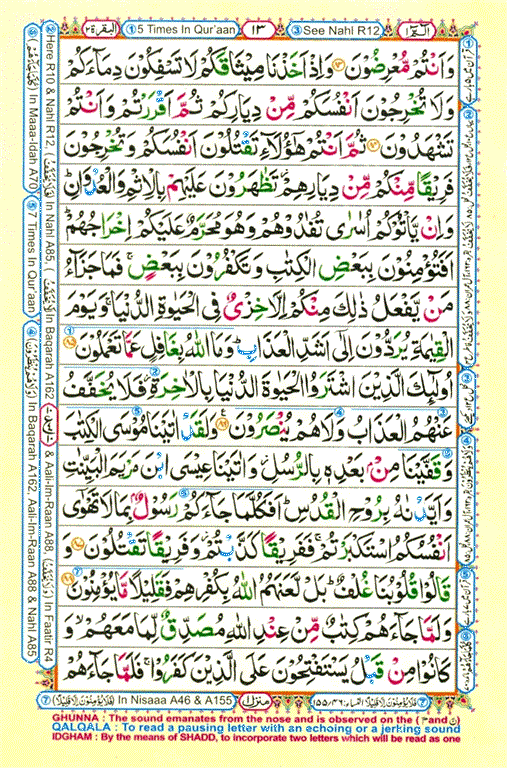 البقرة ٢
① 5 Times In Qur'aan
١٣
③ See Nahl R12
الٓمّٓ ١
وَاَنۡتُمۡ مُّعۡرِضُوۡنَ ﴿۸۳﴾ وَاِذۡ اَخَذۡنَا مِيۡثَاقَكُمۡ لَا تَسۡفِكُوۡنَ دِمَآءَكُمۡ
وَلَا تُخۡرِجُوۡنَ اَنۡفُسَكُمۡ مِّنۡ دِيَارِكُمۡ ثُمَّ اَقۡرَرۡتُمۡ وَاَنۡتُمۡ
تَشۡهَدُوۡنَ ﴿۸۴﴾ ثُمَّ اَنۡتُمۡ هٰٓؤُلَآءِ تَقۡتُلُوۡنَ اَنۡفُسَكُمۡ وَتُخۡرِجُوۡنَ
فَرِيۡقًا مِّنۡكُمۡ مِّنۡ دِيَارِهِمۡ تَظٰهَرُوۡنَ عَلَيۡهِمۡ بِالۡاِثۡمِ وَالۡعُدۡوَانِ
وَاِنۡ يَّاۡتُوۡكُمۡ اُسٰرٰى تُفٰدُوۡهُمۡ وَهُوَ مُحَرَّمٌ عَلَيۡكُمۡ اِخۡرَاجُهُمۡ
اَفَتُؤۡمِنُوۡنَ بِبَعۡضِ الۡكِتٰبِ وَتَكۡفُرُوۡنَ بِبَعۡضٍ ۚ فَمَا جَزَآءُ
مَنۡ يَّفۡعَلُ ذٰلِكَ مِنۡكُمۡ اِلَّا خِزۡىٌ فِى الۡحَيٰوةِ الدُّنۡيَا ۚ وَيَوۡمَ
الۡقِيٰمَةِ يُرَدُّوۡنَ اِلٰٓى اَشَدِّ الۡعَذَابِ ؕ وَمَا اللّٰهُ بِغَافِلٍ عَمَّا تَعۡمَلُوۡنَ ﴿۸۵﴾
اُولٰٓئِكَ الَّذِيۡنَ اشۡتَرَوُا الۡحَيٰوةَ الدُّنۡيَا بِالۡاٰخِرَةِ فَلَا يُخَفَّفُ
عَنۡهُمُ الۡعَذَابُ وَلَا هُمۡ يُنۡصَرُوۡنَ ﴿۸۶﴾ وَلَقَدۡ اٰتَيۡنَا مُوۡسَى الۡكِتٰبَ
وَقَفَّيۡنَا مِنۡۢ بَعۡدِهٖ بِالرُّسُلِ وَاٰتَيۡنَا عِيۡسَى ابۡنَ مَرۡيَمَ الۡبَيِّنٰتِ
وَاَيَّدۡنٰهُ بِرُوۡحِ الۡقُدُسِ ؕ اَفَكُلَّمَا جَآءَكُمۡ رَسُوۡلٌۢ بِمَا لَا تَهۡوٰٓى
اَنۡفُسُكُمُ اسۡتَكۡبَرۡتُمۡ ۚ فَفَرِيۡقًا كَذَّبۡتُمۡ وَفَرِيۡقًا تَقۡتُلُوۡنَ ﴿۸۷﴾ وَ
قَالُوۡا قُلُوۡبُنَا غُلۡفٌ ؕ بَلۡ لَّعَنَهُمُ اللّٰهُ بِكُفۡرِهِمۡ فَقَلِيۡلًا مَّا يُؤۡمِنُوۡنَ ﴿۸۸﴾
وَلَمَّا جَآءَهُمۡ كِتٰبٌ مِّنۡ عِنۡدِ اللّٰهِ مُصَدِّقٌ لِّمَا مَعَهُمۡ ۙ وَ
كَانُوۡا مِنۡ قَبۡلُ يَسۡتَفۡتِحُوۡنَ عَلَى الَّذِيۡنَ كَفَرُوۡا ۚ فَلَمَّا جَآءَهُمۡ
② Here R10 & Nahl R12, (لَا يُخَفَّفُ) In Nahl A85, (لَا يُخَفَّفُ) In Baqarah A162 & Aali-Im-Raan A88, (لَا يُخَفَّفُ) In Faatir R4
In Maaa-Idah A70 ⑤ 7 Times In Qur'aan ④ (وَلَا هُمۡ يُنۡظَرُوۡنَ) In Baqarah A162, Aali-Im-Raan A88 & Nahl A85
⑦ (فَلَا يُؤۡمِنُوۡنَ اِلَّا قَلِيۡلًا) In Nisaaa A46 & A155
منزل ١
GHUNNA : The sound emanates from the nose and is observed on the (ن and م)
QALQALA : To read a pausing letter with an echoing or a jerking sound
IDGHAM : By the means of SHADD, to incorporate two letters which will be read as one